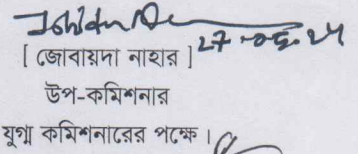 [ জোবায়দা নাহার ]
উপ-কমিশনার
যুগ্ম কমিশনারের পক্ষে ।